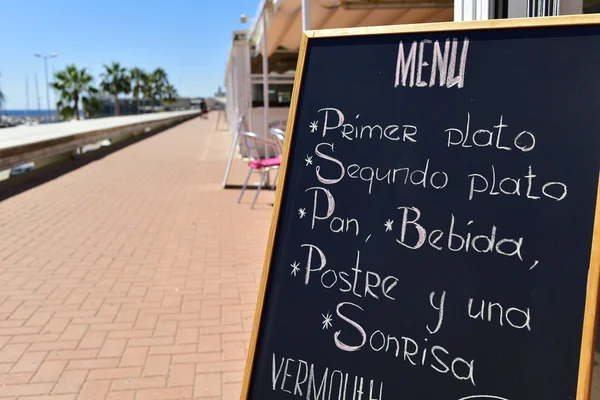 MENU
*Primer plato
*Segundo plato
*Pan, *Bebida,
*Postre y una
*Sonrisa
VERMOUTH